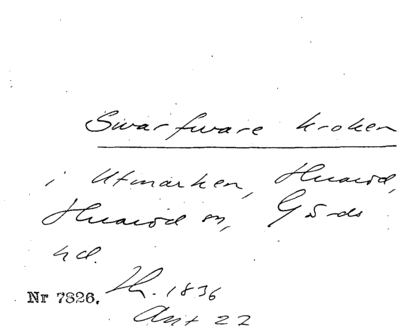 Swarfware kroken
i Utmarken, Huaröd,
Huaröd sn, Gärds
hd.
Nr 7826. 1836
Akt 22